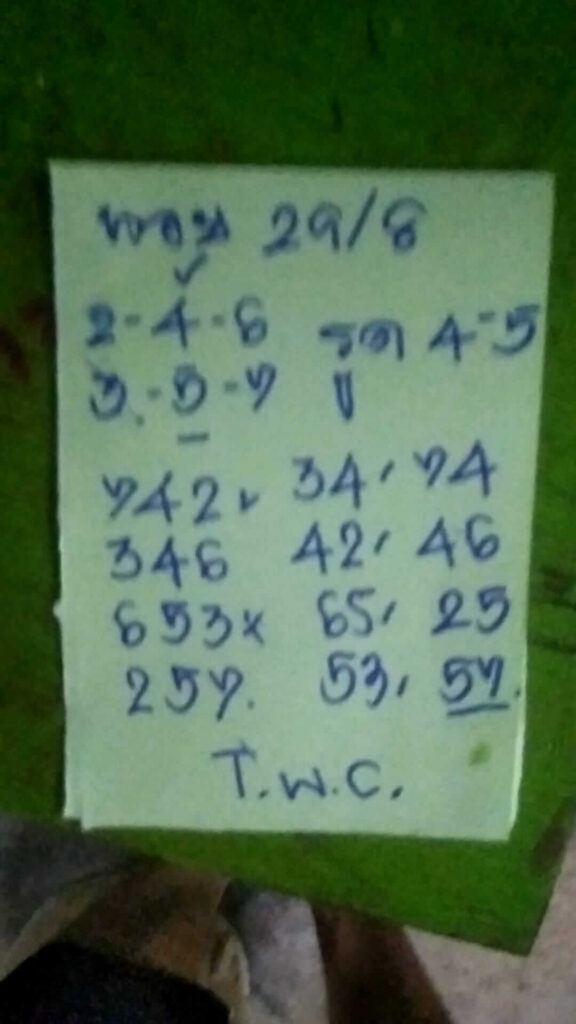 ฟอยุ 29/8
2-4-6 รูด 4-5
3.-5-7
742 34, 74
346 42, 46
653x 65, 25
257. 53, 57.
T.W.C.